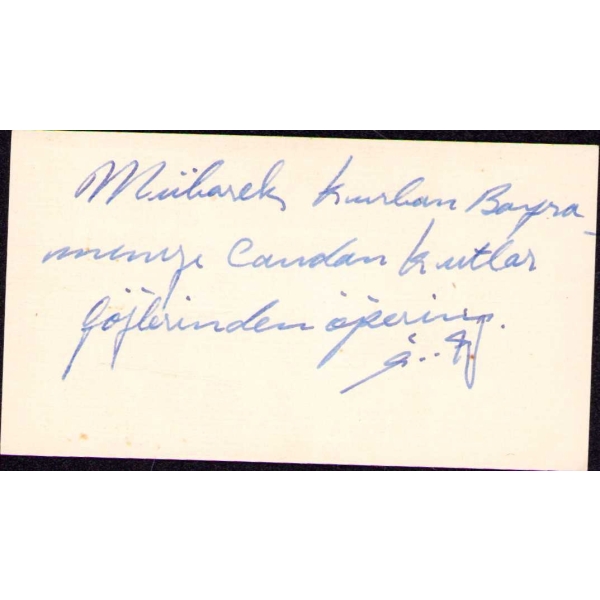 Mübarek Kurban Bayra-
mınızı Candan Kutlar
gözlerinden öperim.